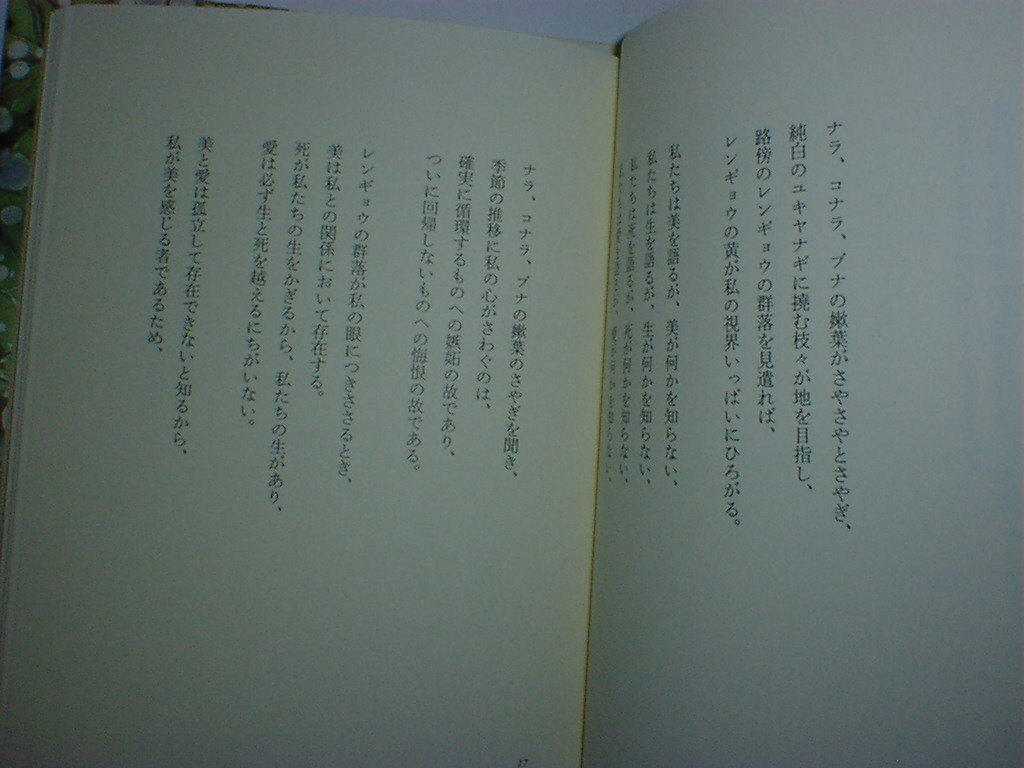 ナラ、コナラ、ブナの嫩葉がさやさやとさやぎ、
純白のユキヤナギに撓む枝々が地を目指し、
路傍のレンギョウの群落を見遣れば、
レンギョウの黄が私の視界いっぱいにひろがる。
私たちは美を語るが、美が何かを知らない、
私たちは生を語るが、生が何かを知らない、
私たちは死を語るが、死が何かを知らない、
私たちは愛を語るが、愛が何かを知らない、
ナラ、コナラ、ブナの嫩葉のさやぎを聞き、
季節の推移に私の心がさわぐのは、
確実に循環するものへの嫉妬の故であり、
ついに回帰しないものへの悔恨の故である。
レンギョウの群落が私の眼につきささるとき、
美は私との関係において存在する。
死が私たちの生をかぎるから、私たちの生があり、
愛は必ず生と死を越えるにちがいない。
美と愛は孤立して存在できないと知るから、
私が美を感じる者であるため、
17